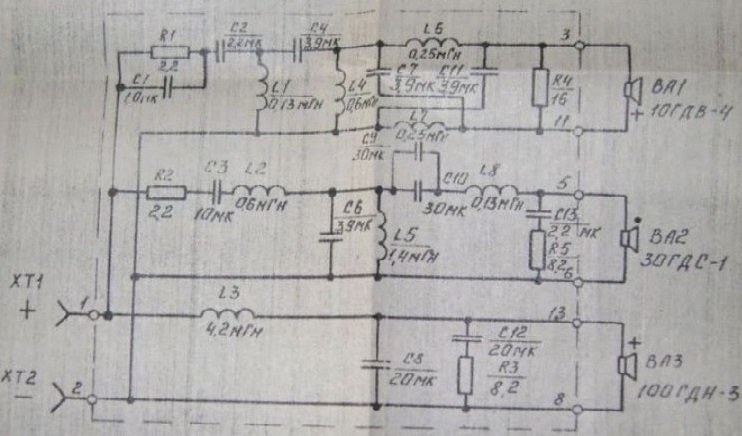 R1
2,2
C1
10мк
C2
2,2мк
C4
3,9мк
L1
0,13мГн
L4
0,6мГн
L6
0,25мГн
C7
3,9мк
C11
3,9мк
R4
16
3
11
BA1
+ 10ГДВ-4
L7
0,25мГн
C9
30мк
R2
2,2
C3
10мк
L2
0,6мГн
C6
3,9мк
L5
1,4мГн
C10
30мк
L8
0,13мГн
C13
2,2 мк
R5
8,2
5
6
BA2
30ГДС-1
XT1
+
1
L3
4,2мГн
XT2
−
2
C8
20мк
C12
20мк
R3
8,2
13
8
+
BA3
100ГДН-3